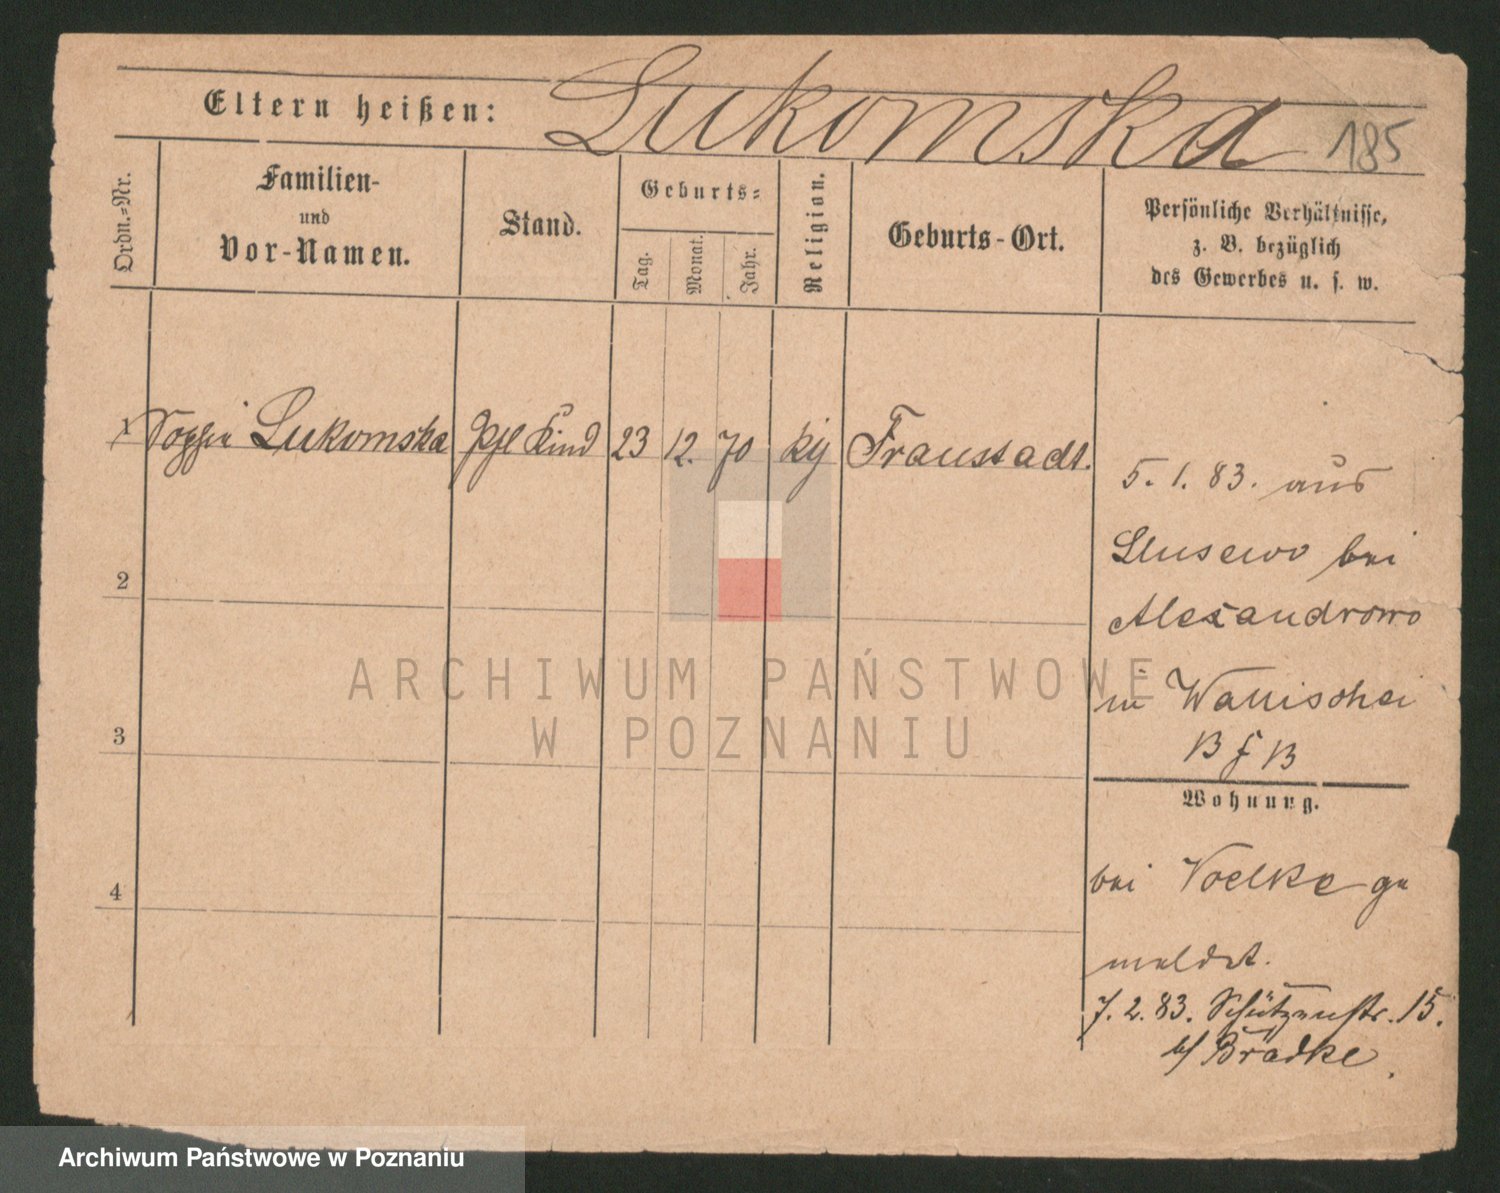 Eltern heißen: Lukomska 185
Ordn.=Nr.
Familien-
und
Vor-Namen.
Stand.
Geburts=
Tag.
Monat.
Jahr.
Religion.
Geburts-Ort.
Persönliche Verhältnisse,
z. B. bezüglich
des Gewerbes u. s. w.
1 Lukomska Kind 23 12. 70 Fraustadt.
5. 1. 83. aus
bei
Alexandrowo
in
2
3
4
Wohnung.
bei Voelke ge
meldet.
7. 2. 83. Schützenstr. 15.
b/ Bradke.
ARCHIWUM PAŃSTWOWE
W POZNANIU
Archiwum Państwowe w Poznaniu